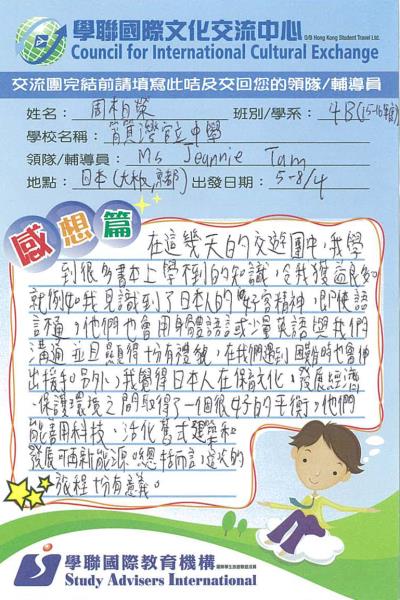 學聯國際文化交流中心 O/B Hong Kong Student Travel Ltd.
Council for International Cultural Exchange
交流團完結前請填寫此咭及交回您的領隊/輔導員
姓名： 周柏燊 班別/學系： 4B(15-16年度)
學校名稱： 筲箕灣官立中學
領隊/輔導員： Ms Jeannie Tam
地點： 日本(大阪,京都) 出發日期： 5-8/4
感想篇
在這幾天的交遊團中，我學
到很多書本上學不到的知識，令我獲益良多。
就例如我見識到了日本人的好客精神，即使語
言不通，他們也會用身體語言或少量英語與我們
溝通並且顯得十份有禮貌，在我們遇到困難時也會伸
出援手。另外，我覺得日本人在保育文化、發展經濟
、保護環境之間取得了一個很好的平衡。他們
能善用科技、活化舊式建築和
發展可再新能源。總括而言，這次的
旅程十份有意義。
學聯國際教育機構
Study Advisers International